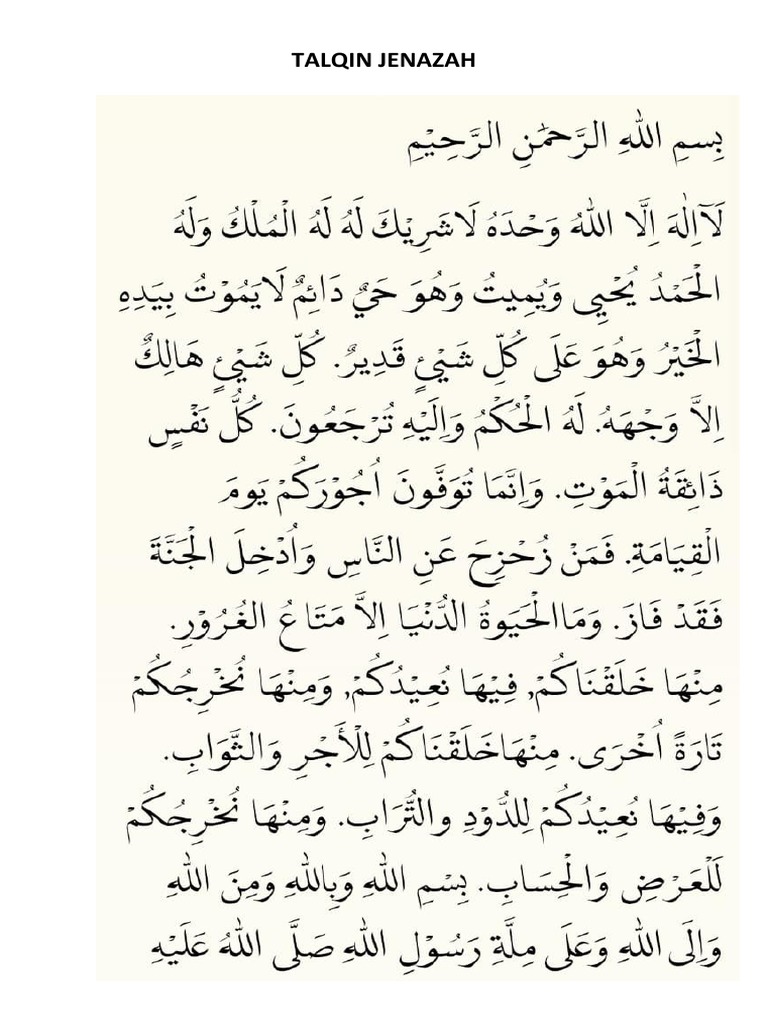 TALQIN JENAZAH
بِسمِ اللهِ الرَّحْمٰنِ الرَّحِيْمِ
لَآاِلٰهَ اِلَّا اللهُ وَحْدَهُ لَاشَرِيْكَ لَهُ لَهُ الْمُلْكُ وَلَهُ
الْحَمْدُ يُحْيِى وَيُمِيتُ وَهُوَ حَيٌّ دَائِمٌ لَايَمُوْتُ بِيَدِهِ
الْخَيْرُ وَهُوَ عَلَى كُلِّ شَيْئٍ قَدِيرٌ. كُلِّ شَيْئٍ هَالِكٌ
اِلاَّ وَجْهَهُ. لَهُ الْحُكْمُ وَاِلَيْهِ تُرْجَعُونَ. كُلُّ نَفْسٍ
ذَائِقَةُ الْمَوْتِ. وَاِنَّمَا تُوَفَّونَ اُجُوْرَكُمْ يَومَ
الْقِيَامَةِ. فَمَنْ زُحْزِحَ عَنِ النَّاسِ وَاُدْخِلَ الْجَنَّةَ
فَقَدْ فَازَ. وَمَاالْحَيَوةُ الدُّنْيَا اِلاَّ مَتَاعُ الغُرُوْرِ.
مِنْهَا خَلَقْنَاكُمْ, فِيْهَا نُعِيْدُكُمْ, وَمِنْهَا نُخْرِجُكُمْ
تَارَةً اُخْرَى. مِنْهَاخَلَقْنَاكُمْ لِلْأَجْرِ وَالثَّوَابِ.
وَفِيْهَا نُعِيْدُكُمْ لِلدُّوْدِ والتُّرَابِ. وَمِنْهَا نُخْرِجُكُمْ
لَلْعَرْضِ وَالْحِسَابِ. بِسْمِ اللهِ وَبِاللهِ وَمِنَ اللهِ
وَاِلَى اللهِ وَعَلَى مِلَّةِ رَسُوْلِ اللهِ صَلَّى اللهُ عَلَيْهِ